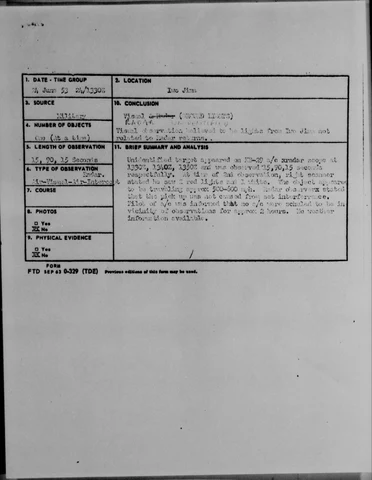 1. DATE - TIME GROUP
24 June 53 24/1330Z
2. LOCATION
Iwo Jima
3. SOURCE
Military
10. CONCLUSION
Visual (GROUND LIGHTS)
RADAR
Visual observation believed to be lights from Iwo Jima not
related to Radar returns.
4. NUMBER OF OBJECTS
One (At a time)
5. LENGTH OF OBSERVATION
15, 90, 15 seconds
11. BRIEF SUMMARY AND ANALYSIS
Unidentified target appeared on a/c radar scope at
1330Z, 1340Z, 1350Z and was observed 15,90,15 seconds
respectfully. At time of 2nd observation, right scanner
stated he saw 2 red lights and 1 white. The object appeared
to be traveling approx 500-600 mph. Radar observer stated
that the pick up was not caused from set interference.
Pilot of a/c was informed that no a/c were scheduled to be in
vicinity of observations for approx 2 hours. No further
information available.
6. TYPE OF OBSERVATION
Radar.
Air-Visual-Air-Intercept
7. COURSE
8. PHOTOS
□ Yes
☒ No
9. PHYSICAL EVIDENCE
□ Yes
☒ No
FORM
FTD SEP 63 0-329 (TDE) Previous editions of this form may be used.